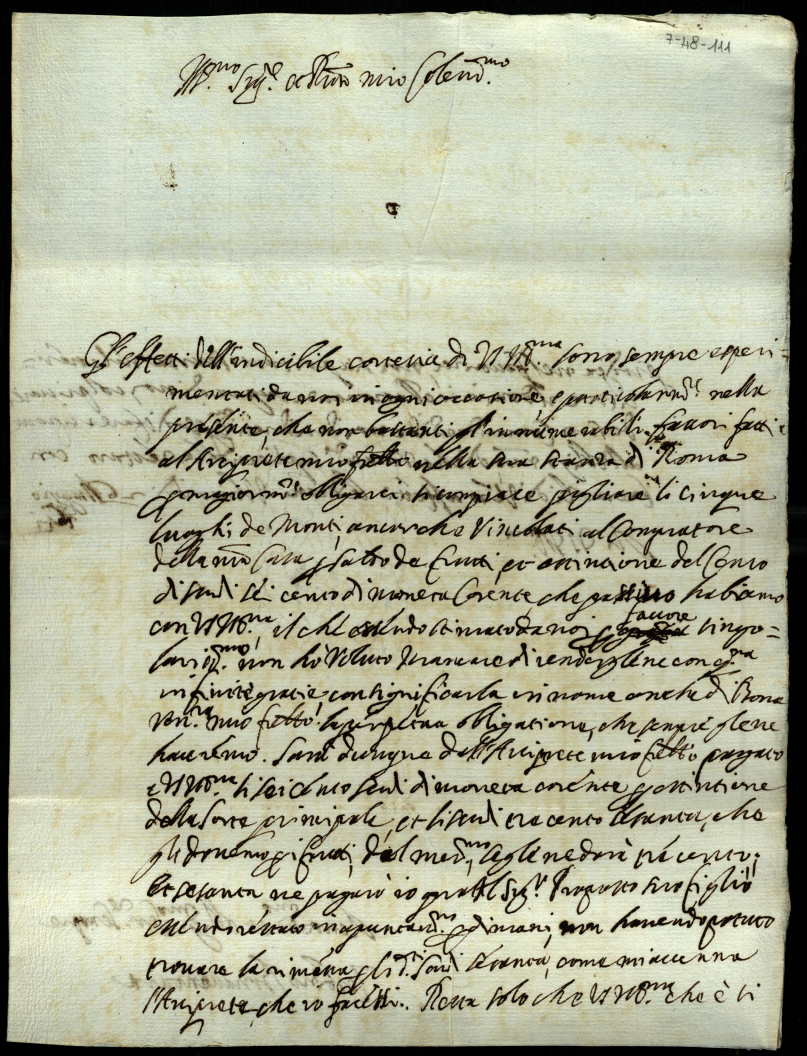 7-48-111
Ill.mo Sig.re e Pron mio Colend.mo
Gl'effetti dell'indicibile cortesia di V.S. Ill.ma sono sempre esperi=
mentati da noi in ogni occasione, e particolarm.te nella
presente, che non bastanti gl'innumerabili favori fatti
al Arciprete mio frello nella sua stanza di Roma
p maggiorm.te obligarci si compiace pigliare li cinque
luoghi de Monti, ancorche vincolati al Compratore
della n'ra Casa p saldo de frutti, et estintione del Censo
di scudi sei cento di moneta corente, che passivo habbiamo
con V.S. Ill.ma, il che essendo stimato da noi p favore singo=
laris.mo non hò voluto mancare di rendergliene con q.ta
infinite gratie, con significarla in nome anche di Bona
mio frello la perpetua obligatione, che sempre gliene
haveremo. Sarà dunque dall'Arciprete mio frello pagato
a V.S. Ill.ma li sei cento scudi di moneta corente p estintione
della sorte principale, et li scudi trecento sesanta, che
gli dovemo p i frutti, dal med.mo se gliene darà trecento,
et sesanta ne pagarò io quà al Sig.r Proposto suo figlio
essendo restato in apuntar.to p dimani, non havendo potuto
trovare la rimessa p li d.ti scudi sesanta, come mi accenna
l'Arciprete, che io facessi. Resta solo che V.S. Ill.ma che è si